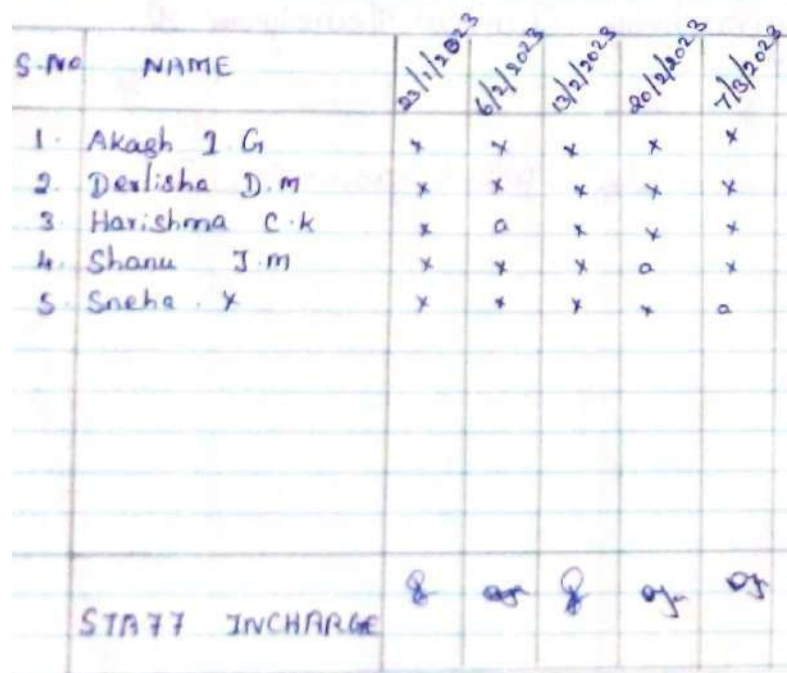 S.No NAME 23/1/2023 6/2/2023 13/2/2023 20/2/2023 7/3/2023
1. Akash I G x x x x x
2. Derlisha D.m x x x x x
3. Harishma C.k x a x x x
4. Shanu J.m x x x a x
5. Sneha . X x x x x a
STAFF INCHARGE